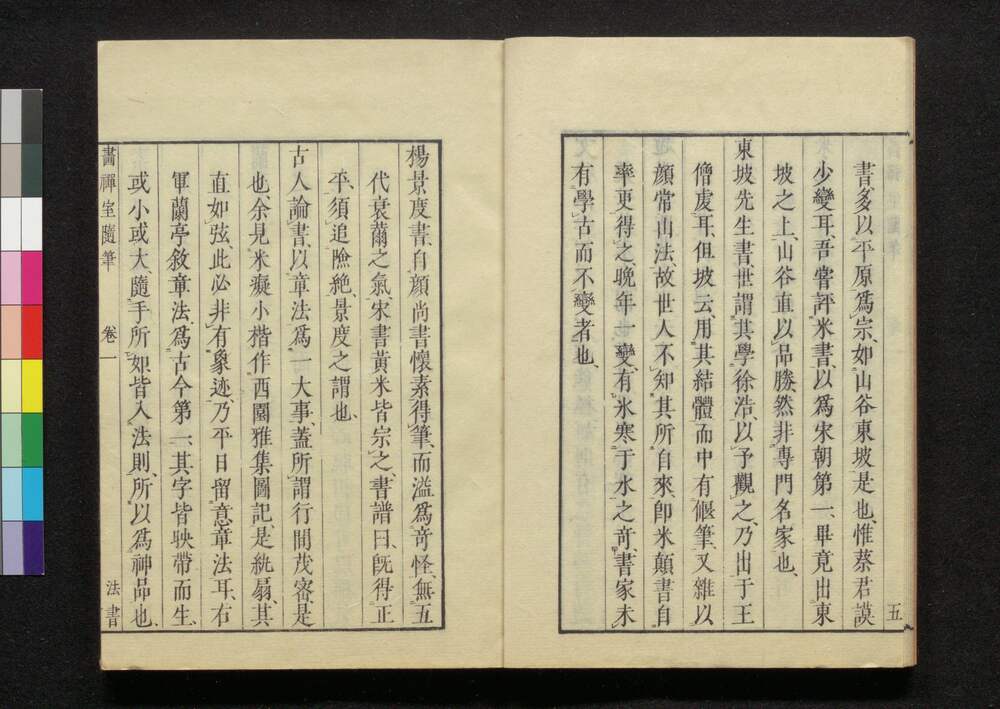 五
書多以平原爲宗、如山谷東坡是也、惟蔡君謨
少變耳、吾嘗評米書、以爲宋朝第一、畢竟出東
坡之上、山谷直以品勝、然非專門名家也、
東坡先生書、世謂其學徐浩、以予觀之、乃出于王
僧虔耳、但坡云、用其結體而中有偃筆、又雜以
顏常山法、故世人不知其所自來、卽米顛書自
率更得之、晚年一變、有氷寒于水之奇、書家未
有學古而不變者也、
楊景度書、自顏尚書懷素得筆、而溢爲奇怪、無五
代衰薾之氣、宋書黃米皆宗之、書譜曰、旣得正
平、須追險絕、景度之謂也、
古人論書、以章法爲一大事、蓋所謂行間茂密、是
也、余見米癡小楷作西園雅集圖記、是紈扇、其
直如弦、此必非有象迹、乃平日留意章法耳、右
軍蘭亭敘章法、爲古今第一、其字皆映帶而生、
或小或大、隨手所如皆入法則、所以爲神品也、
畫禪室隨筆
卷一
法書